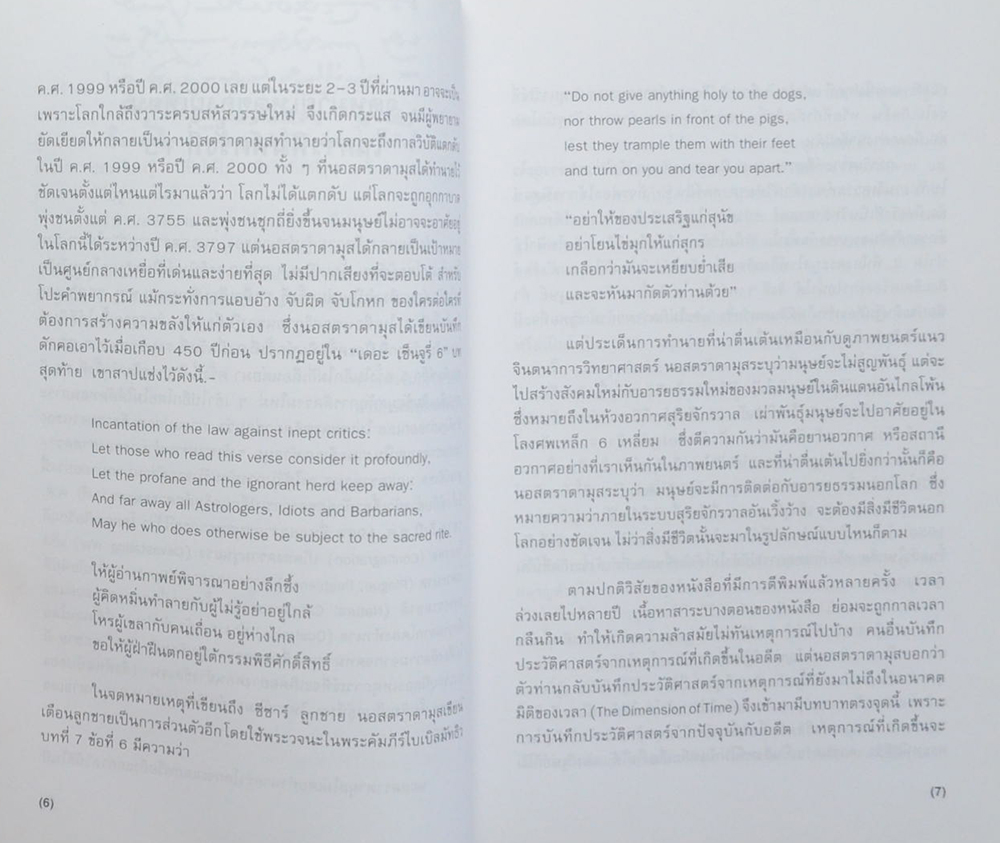 ค.ศ. 1999 หรือปี ค.ศ. 2000 เลย แต่ในระยะ 2-3 ปีที่ผ่านมา อาจจะเป็น
เพราะโลกใกล้ถึงวาระครบสหัสวรรษใหม่ จึงเกิดกระแส จนมีผู้พยายาม
ยัดเยียดให้กลายเป็นว่านอสตราดามุสทำนายว่าโลกจะถึงกาลวิบัติแตกดับ
ในปี ค.ศ. 1999 หรือปี ค.ศ. 2000 ทั้ง ๆ ที่นอสตราดามุสได้ทำนายไว้
ชัดเจนตั้งแต่ไหนแต่ไรมาแล้วว่า โลกไม่ได้แตกดับ แต่โลกจะถูกอุกกาบาต
พุ่งชนตั้งแต่ ค.ศ. 3755 และพุ่งชนชุกถี่ยิ่งขึ้นจนมนุษย์ไม่อาจจะอาศัยอยู่
ในโลกนี้ได้ระหว่างปี ค.ศ. 3797 แต่นอสตราดามุสได้กลายเป็นเป้าหมาย
เป็นศูนย์กลางเหยื่อที่เด่นและง่ายที่สุด ไม่มีปากเสียงที่จะตอบโต้ สำหรับ
โปะคำพยากรณ์ แม้กระทั่งการแอบอ้าง จับผิด จับโกหก ของใครต่อใครที่
ต้องการสร้างความขลังให้แก่ตัวเอง ซึ่งนอสตราดามุสได้เขียนบันทึก
ดักคอเอาไว้เมื่อเกือบ 450 ปีก่อน ปรากฏอยู่ใน “เดอะ เซ็นจูรี่ 6” บท
สุดท้าย เขาสาปแช่งไว้ดังนี้.-
Incantation of the law against inept critics:
Let those who read this verse consider it profoundly,
Let the profane and the ignorant herd keep away:
And far away all Astrologers, Idiots and Barbarians,
May he who does otherwise be subject to the sacred rite.
ให้ผู้อ่านกาพย์พิจารณาอย่างลึกซึ้ง
ผู้คิดหมิ่นทำลายกับผู้ไม่รู้อย่าอยู่ใกล้
โหรผู้เขลากับคนเถื่อน อยู่ห่างไกล
ขอให้ผู้ฝ่าฝืนตกอยู่ใต้กรรมพิธีศักดิ์สิทธิ์
ในจดหมายเหตุที่เขียนถึง ซีซาร์ ลูกชาย นอสตราดามุสเขียน
เตือนลูกชายเป็นการส่วนตัวอีก โดยใช้พระวจนะในพระคัมภีร์ไบเบิลมัทธิว
บทที่ 7 ข้อที่ 6 มีความว่า
(6)
“Do not give anything holy to the dogs,
nor throw pearls in front of the pigs,
lest they trample them with their feet
and turn on you and tear you apart.”
“อย่าให้ของประเสริฐแก่สุนัข
อย่าโยนไข่มุกให้แก่สุกร
เกลือกว่ามันจะเหยียบย่ำเสีย
และจะหันมากัดตัวท่านด้วย”
แต่ประเด็นการทำนายที่น่าตื่นเต้นเหมือนกับดูภาพยนตร์แนว
จินตนาการวิทยาศาสตร์ นอสตราดามุสระบุว่ามนุษย์จะไม่สูญพันธุ์ แต่จะ
ไปสร้างสังคมใหม่กับอารยธรรมใหม่ของมวลมนุษย์ในดินแดนอันไกลโพ้น
ซึ่งหมายถึงในห้วงอวกาศสุริยจักรวาล เผ่าพันธุ์มนุษย์จะไปอาศัยอยู่ใน
โลงศพเหล็ก 6 เหลี่ยม ซึ่งตีความกันว่ามันคือยานอวกาศ หรือสถานี
อวกาศอย่างที่เราเห็นกันในภาพยนตร์ และที่น่าตื่นเต้นไปยิ่งกว่านั้นก็คือ
นอสตราดามุสระบุว่า มนุษย์จะมีการติดต่อกับอารยธรรมนอกโลก ซึ่ง
หมายความว่าภายในระบบสุริยจักรวาลอันเวิ้งว้าง จะต้องมีสิ่งมีชีวิตนอก
โลกอย่างชัดเจน ไม่ว่าสิ่งมีชีวิตนั้นจะมาในรูปลักษณ์แบบไหนก็ตาม
ตามปกติวิสัยของหนังสือที่มีการตีพิมพ์แล้วหลายครั้ง เวลา
ล่วงเลยไปหลายปี เนื้อหาสาระบางตอนของหนังสือ ย่อมจะถูกกาลเวลา
กลืนกิน ทำให้เกิดความล้าสมัยไม่ทันเหตุการณ์ไปบ้าง คนอื่นบันทึก
ประวัติศาสตร์จากเหตุการณ์ที่เกิดขึ้นในอดีต แต่นอสตราดามุสบอกว่า
ตัวท่านกลับบันทึกประวัติศาสตร์จากเหตุการณ์ที่ยังมาไม่ถึงในอนาคต
มิติของเวลา (The Dimension of Time) จึงเข้ามามีบทบาทตรงจุดนี้ เพราะ
การบันทึกประวัติศาสตร์จากปัจจุบันกับอดีต เหตุการณ์ที่เกิดขึ้นจะ
(7)